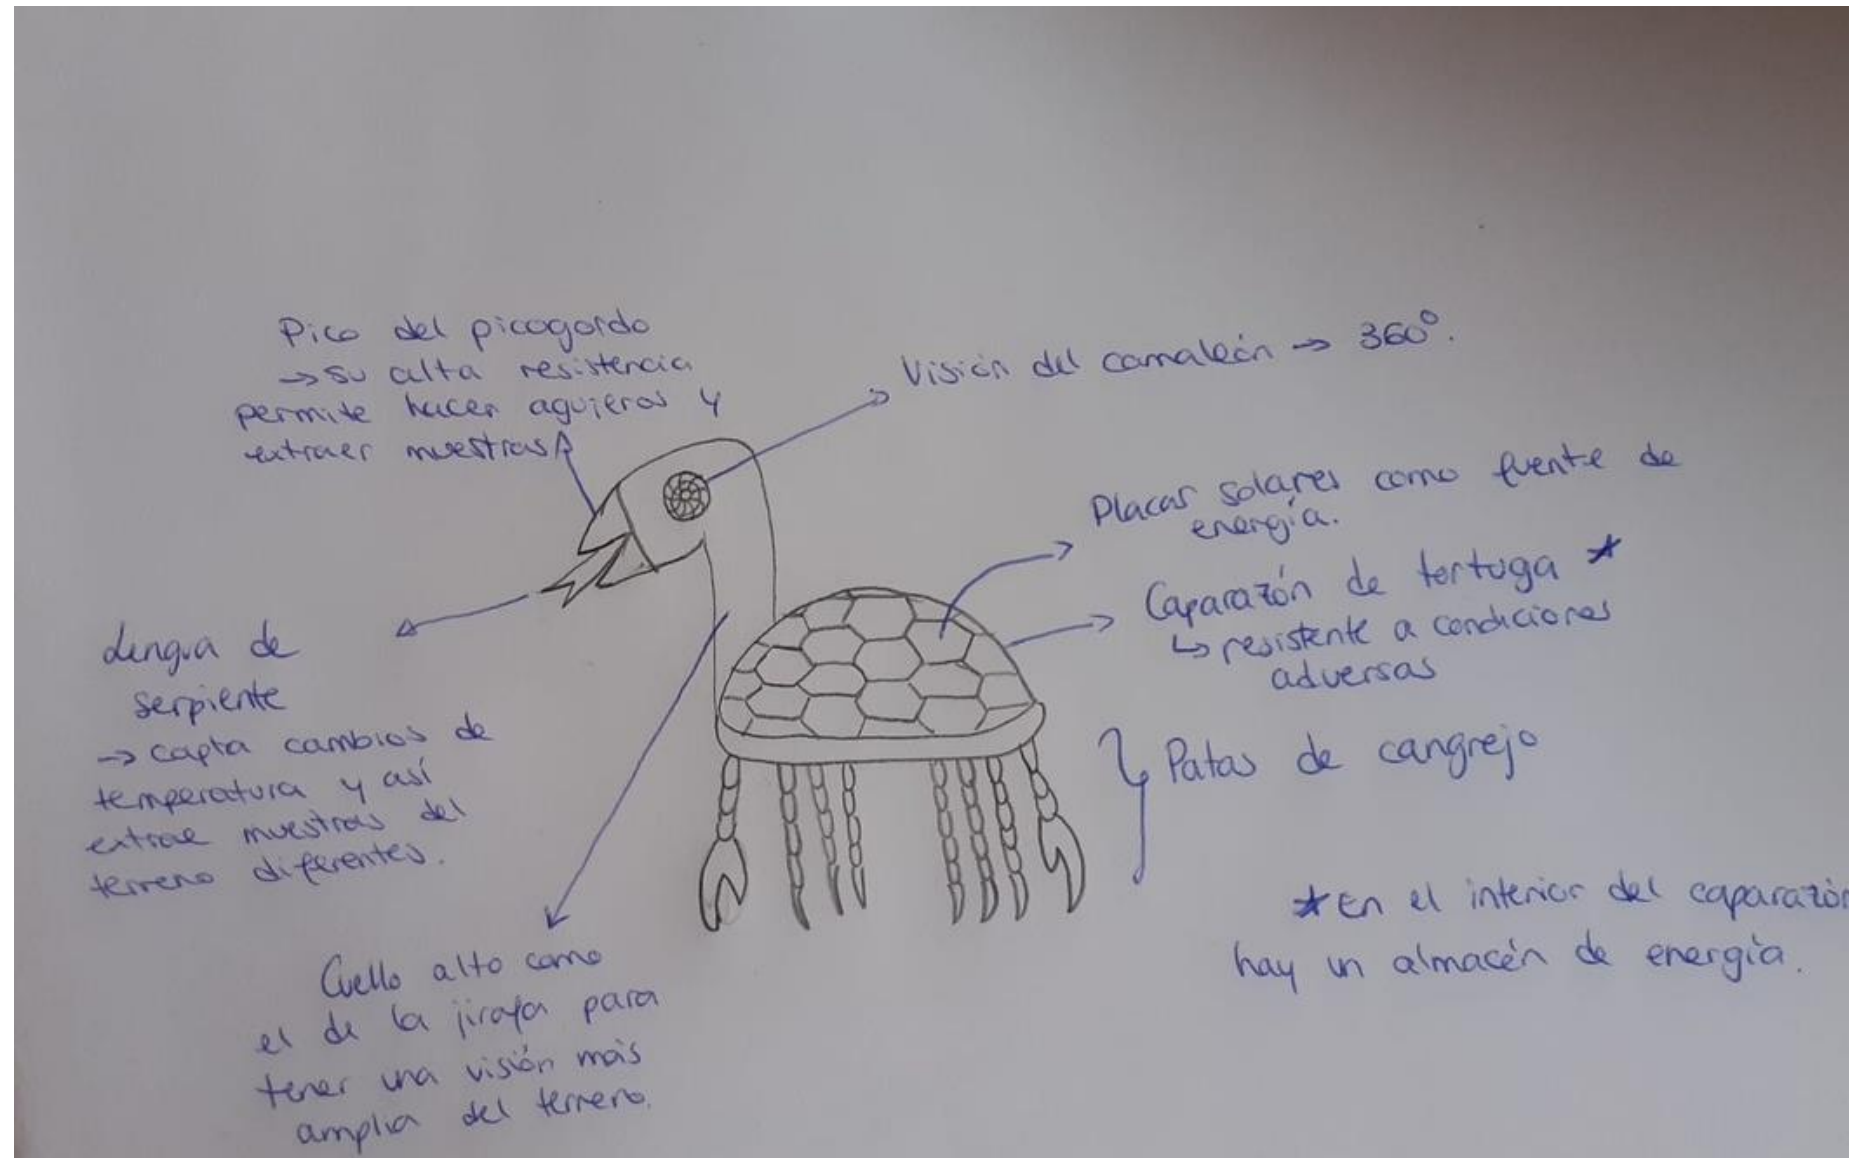 Pico del picogordo
→ su alta resistencia
permite hacer agujeros y
extraer muestras
Visión del camaleón → 360°.
Placas solares como fuente de
energía.
Caparazón de tortuga *
↳ resistente a condiciones
adversas
Lengua de
serpiente
→ capta cambios de
temperatura y así
extrae muestras del
terreno diferentes.
Patas de cangrejo
* En el interior del caparazón
hay un almacén de energía.
Cuello alto como
el de la jirafa para
tener una visión más
amplia del terreno.